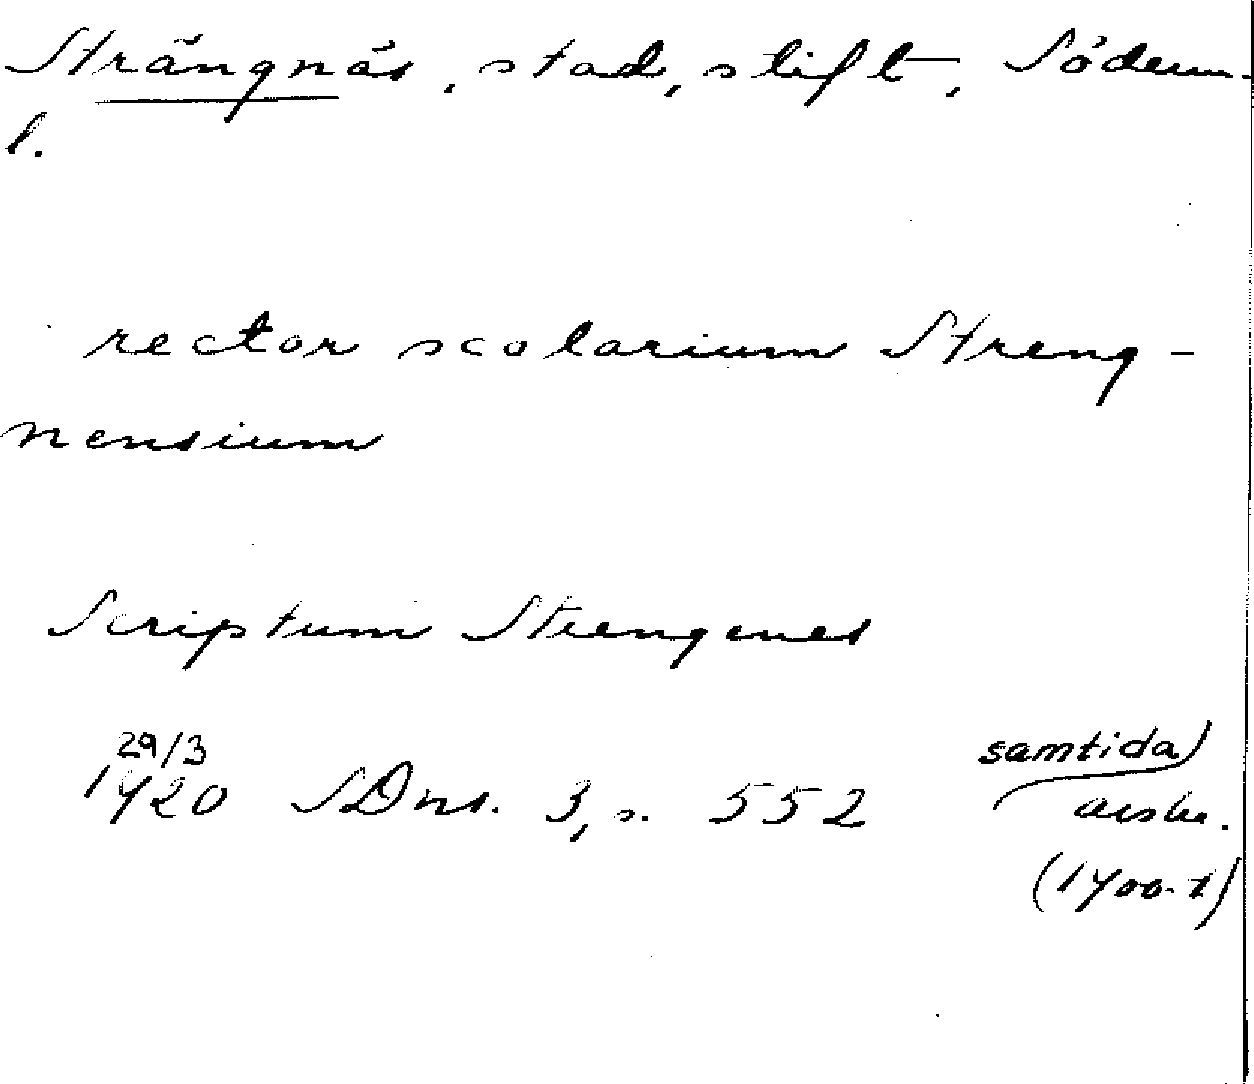 Strängnäs, stad, stift, Söderm-
l.
rector scolarium Streng-
nensium
Scriptum Strengenes
29/3
1420 SDns. 3, s. 552
samtida
avskr.
(1400-t)